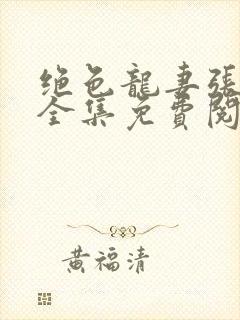 绝色龍妻張
全集免費閱
黃福清